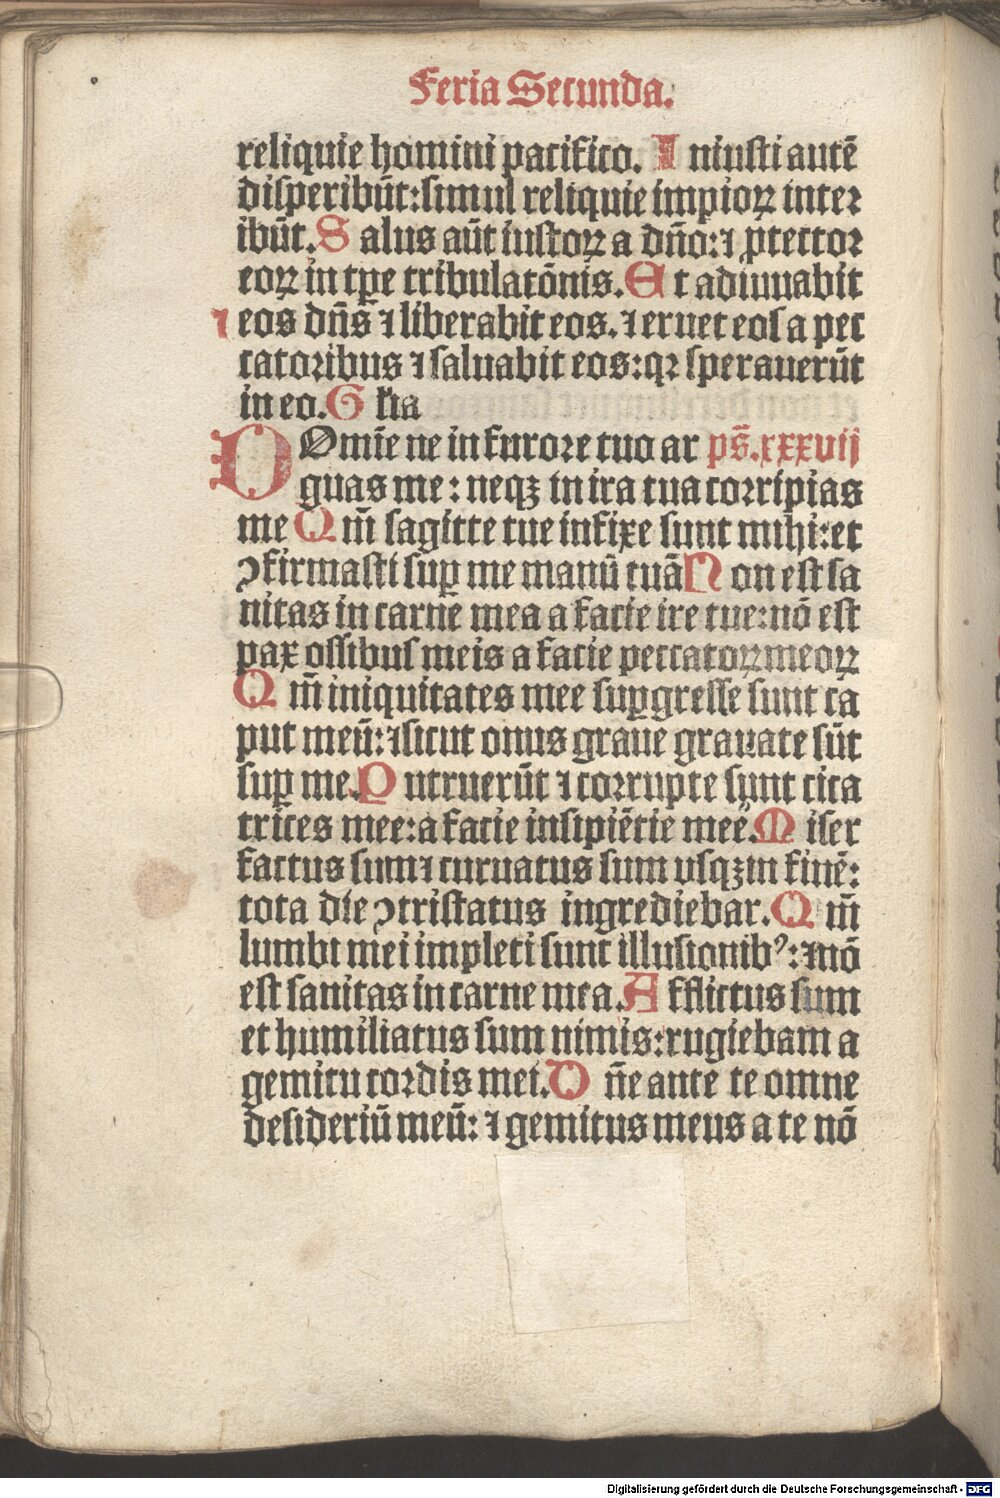 Feria Secunda.
reliquie homini pacifico. Iniusti autē
disperibūt: simul reliquie impioꝝ inter
ibūt. Salus aūt iustoꝝ a dño: ⁊ ꝓtector
eoꝝ in tꝑe tribulatōnis. Et adiuuabit
eos dñs ⁊ liberabit eos. ⁊ eruet eos a pec
catoribus ⁊ saluabit eos: qꝛ sperauerūt
in eo. Glia
DOmīe ne in furore tuo ar ps̄. xxxvij
guas me: neqꝫ in ira tua corripias
me Qm̄ sagitte tue infixe sunt mihi: et
ꝯfirmasti suꝑ me manū tuā Non est sa
nitas in carne mea a facie ire tue: nō est
pax ossibus meis a facie peccatoꝝ meoꝝ
Qm̄ iniquitates mee suꝑgresse sunt ca
put meū: ⁊ sicut onus graue grauate sūt
suꝑ me. Putruerūt ⁊ corrupte sunt cica
trices mee: a facie insipiētie mee. Miser
factus sum ⁊ curuatus sum vsqꝫ in finē:
tota die ꝯtristatus ingrediebar. Qm̄
lumbi mei impleti sunt illusionibꝰ: ⁊ nō
est sanitas in carne mea. Afflictus sum
et humiliatus sum nimis: rugiebam a
gemitu cordis mei. Dñe ante te omne
desideriū meū: ⁊ gemitus meus a te nō
Digitalisierung gefördert durch die Deutsche Forschungsgemeinschaft - DFG